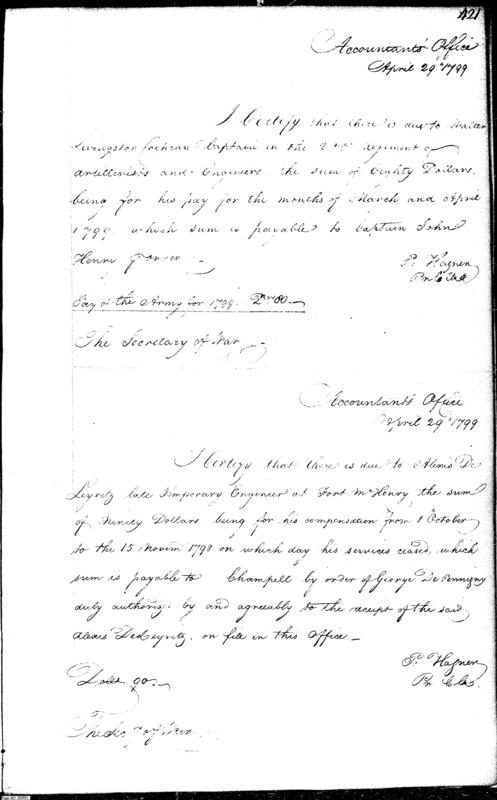 421
Accountants Office
April 29th 1799
I Certify that there is due to Walter
Livingston Cochran Captain in the 2nd regiment of
Artillerists and Engineers, the sum of Eighty Dollars,
being for his pay for the months of March and April
1799, which sum is payable to Captain John
Henry
P. Hagner
Pr Clk
Pay of the Army for 1799. Drs 80.
The Secretary of War
Accountants Office
April 29th 1799
I Certify that there is due to Alexis De
Leyritz late Temporary Engineer at Fort McHenry, the sum
of Ninety Dollars being for his compensation from 1 October
to the 15 Novem 1798 on which day his services ceased, which
sum is payable to Champell by order of George De Pennigny
duly authoriz: by and agreeably to the receipt of the said
Alexis DeLeyritz, on file in this Office
P. Hagner
Pr Clk
90.
The Secy of War